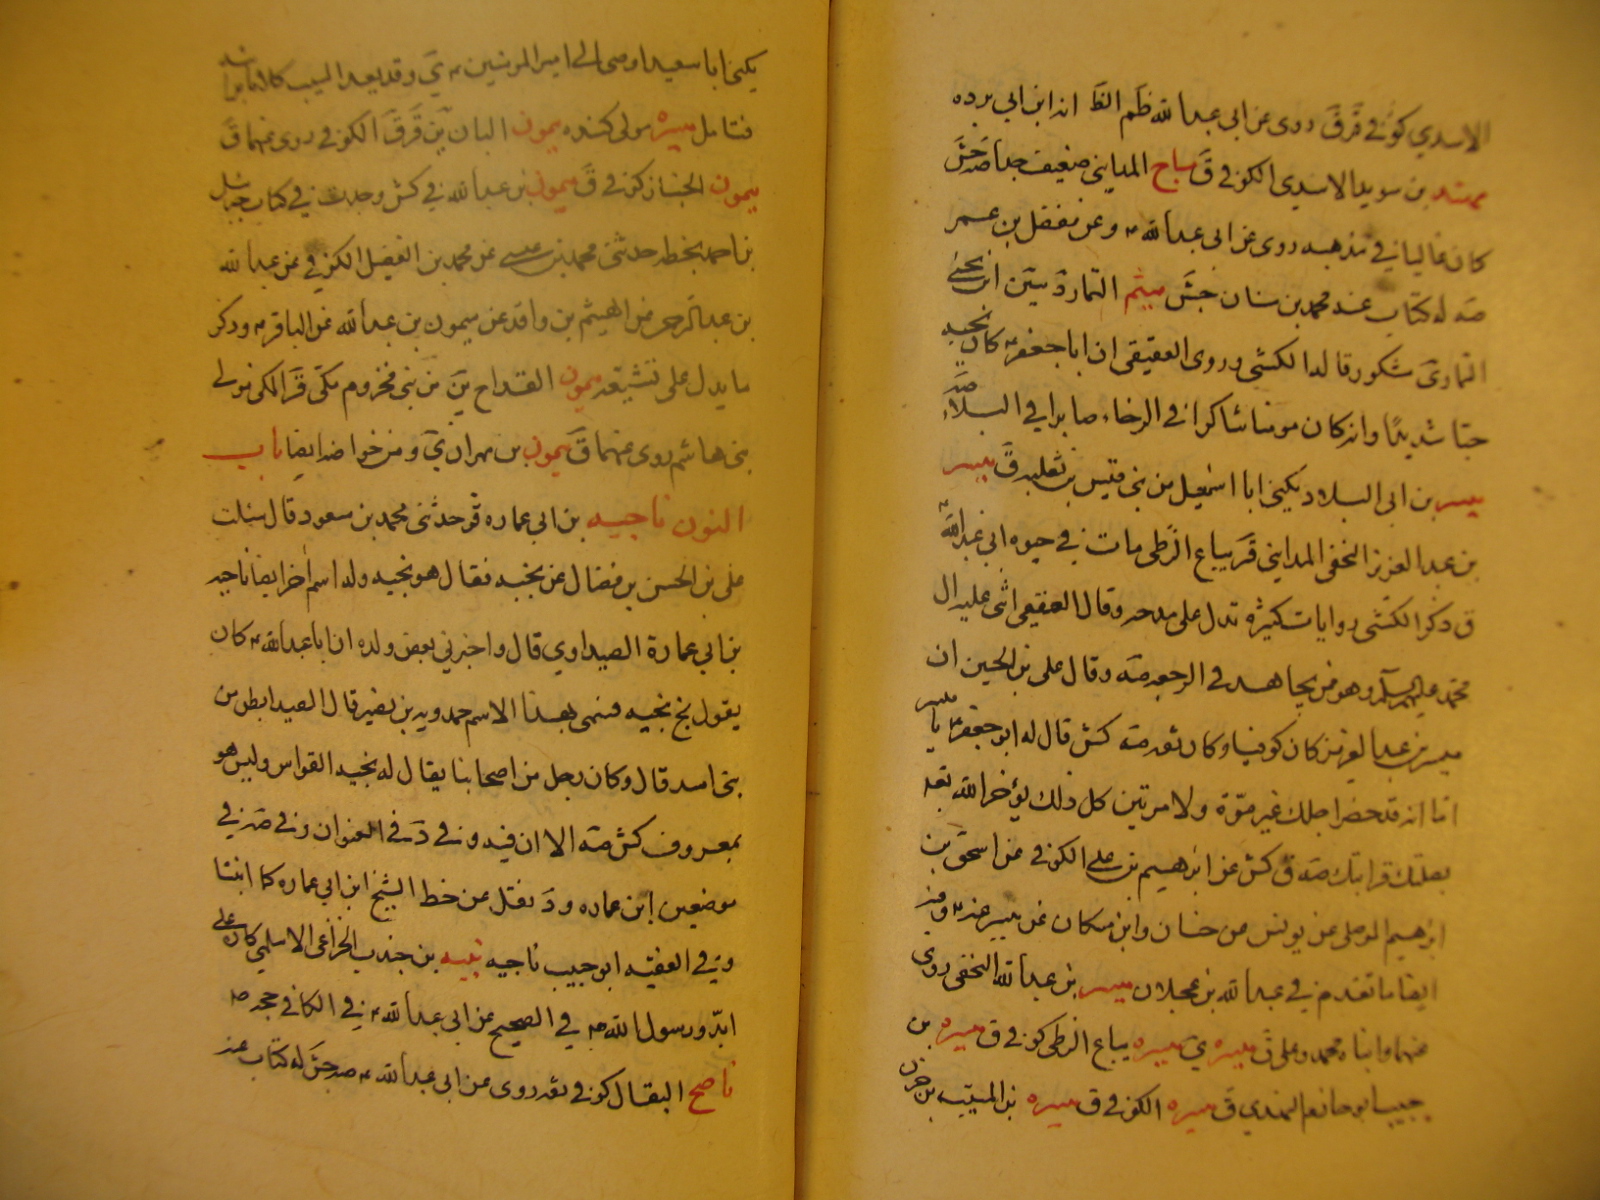 الاسدي كوفي ق ق روى عن ابى عبدالله ظم الظ انه ابن ابى برده
بن سويد الاسدى الكوفى ق مياح المداينى ضعيف جدا صه جش
كان غاليا فى مذهبه روى عن ابى عبدالله م وعن مفضل بن عمر
صه له كتاب عند محمد بن سنان جش ميثم التمار
التمار مشكور قاله الكشى وروى العقيقى ان ابا جعفر م كان يحبه
حبا شديدا وانه كان مومنا شاكرا فى الرخاء صابرا فى البلاء صه
ميسر بن ابى البلاد يكنى ابا اسمعيل من بنى قيس بن ثعلبه ق ميسر
بن عبد العزيز النخعى المداينى ق ر بياع الزطى مات فى حيوه ابى عبدالله م
ق ذكر الكشى روايات كثيرة تدل على مدحه وقال العقيقى اثنى عليه ال
محمد عليهم السلم وهو من يجاهد فى الرجعه صه وقال على بن الحسين ان
ميسر بن عبدالعزيز كان كوفيا وكان ثقه صه كش قال له ابو جعفر م يا ميسر
اما انه قد حضر اجلك غير مرة ولا مرتين كل ذلك يؤخر الله
بصلتك قرابتك صه ق كش عن ابرهيم بن على الكوفى عن اسحق بن
ابرهيم الموصلى عن يونس عن حنان وابن مسكان عن ميسر عنه م وفيه
ايضا ما تقدم فى عبدالله بن عجلان ميسر بن عبدالله النخعى روى
عنهما وابناه محمد وعلى ق ميسره ى ميسره بياع الزطى كوفى ق ميسره بن
حبيب ابو حازم النهدي ق ميسره الكوفى ق ميسره بن المسيب بن حزن
يكنى ابا سعيد اوصى الى امير المومنين م ى وقد يعد المسيب
فتامل ميسره مولى كنده ميمون البان ين ق ر ق الكوفى روى عنهما ق
ميمون الخباز كوفى ق ميمون بن عبدالله فى كش وجدت فى كتاب جبرئيل
بن احمد بخطه حدثنى محمد بن عيسى عن محمد بن الفضيل الكوفى عن عبدالله
بن عبدالرحمن عن الهيثم بن واقد عن ميمون بن عبدالله عن الباقر م وذكر
ما يدل على تشيعه ميمون القداح ين من بنى مخزوم مكى ق ر المكى مولى
بنى هاشم روى عنهما ق ميمون بن مهران ى ومن خواصه ايضا باب
النون ناجيه بن ابى عماره ق ر حدثنى محمد بن مسعود قال سئلت
على بن الحسن بن فضال عن نجيه فقال هو نجيه وله اسم اخر ايضا ناجيه
بن ابي عمارة الصيداوي قال واخبرني بعض ولده ان ابا عبدالله م كان
يقول نج نجيه فسمى بهذا الاسم حمدويه بن نصير قال الصيدا بطن من
بنى اسد قال وكان رجل من اصحابنا يقال له نجيه القواس وليس هو
بمعروف كش صه الا ان فيه وفى د فى العنوان وفى صه فى
موضعين ابن عماره و د نقل عن خط الشيخ ابن ابى عماره كما اثبتنا
وفى الفقيه ابو حبيب ناجيه نبيه بن جندب الخزاعى الاسلمى كان على
ورسول الله ص في الصحيح عن ابى عبدالله م فى الكافى
ناصح البقال كوفى ثقه روى عن ابى عبدالله م صه جش له كتاب عنه